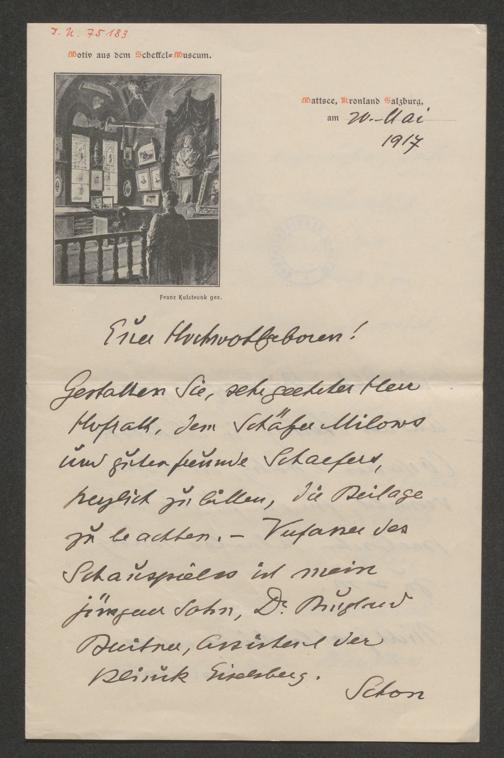 J. N. 75183
Motiv aus dem Scheffel-Museum.
Mattsee, Kronland Salzburg,
am 20. Mai
1917
Franz Kulstrunk gez.
Euer Hochwohlgeboren!
Gestatten Sie, sehr geehrter Herr
Hofrath, dem Schäfer Milows
und guten Freunde Schaefers,
herzlich zu bitten, die Beilage
zu beachten. – Verfasser des
Schauspieles ist mein
jüngerer Sohn, Dr. Burghard
Breitner, Assistent der
Klinik Eiselsberg.
Schon